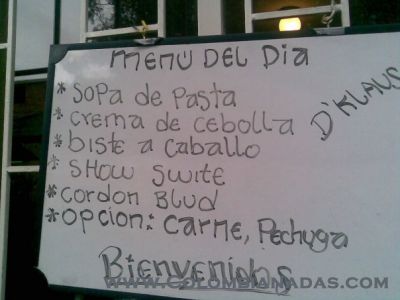 MENÚ DEL DIA
* SOPA de PASTA
* CREMA de CEBOLLA
* biste a CABALLO
* SHOW SUITE
* CORDON BLUD
* OPCION: CARNE, PECHUGA
Bienvenidos
D'KLAUS
WWW.COLOMBIANADAS.COM